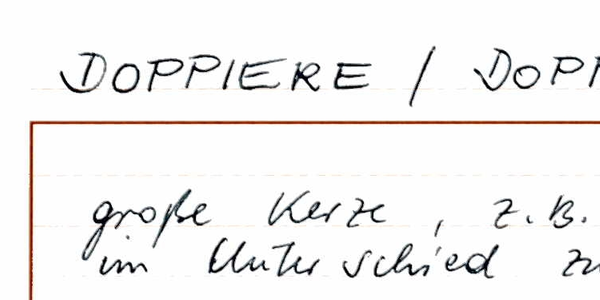 DOPPIERE / DOPP
große Kerze, z.B.
im Unterschied zu